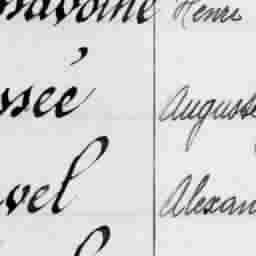 navoine Henri
ssée Auguste
vel Alexan